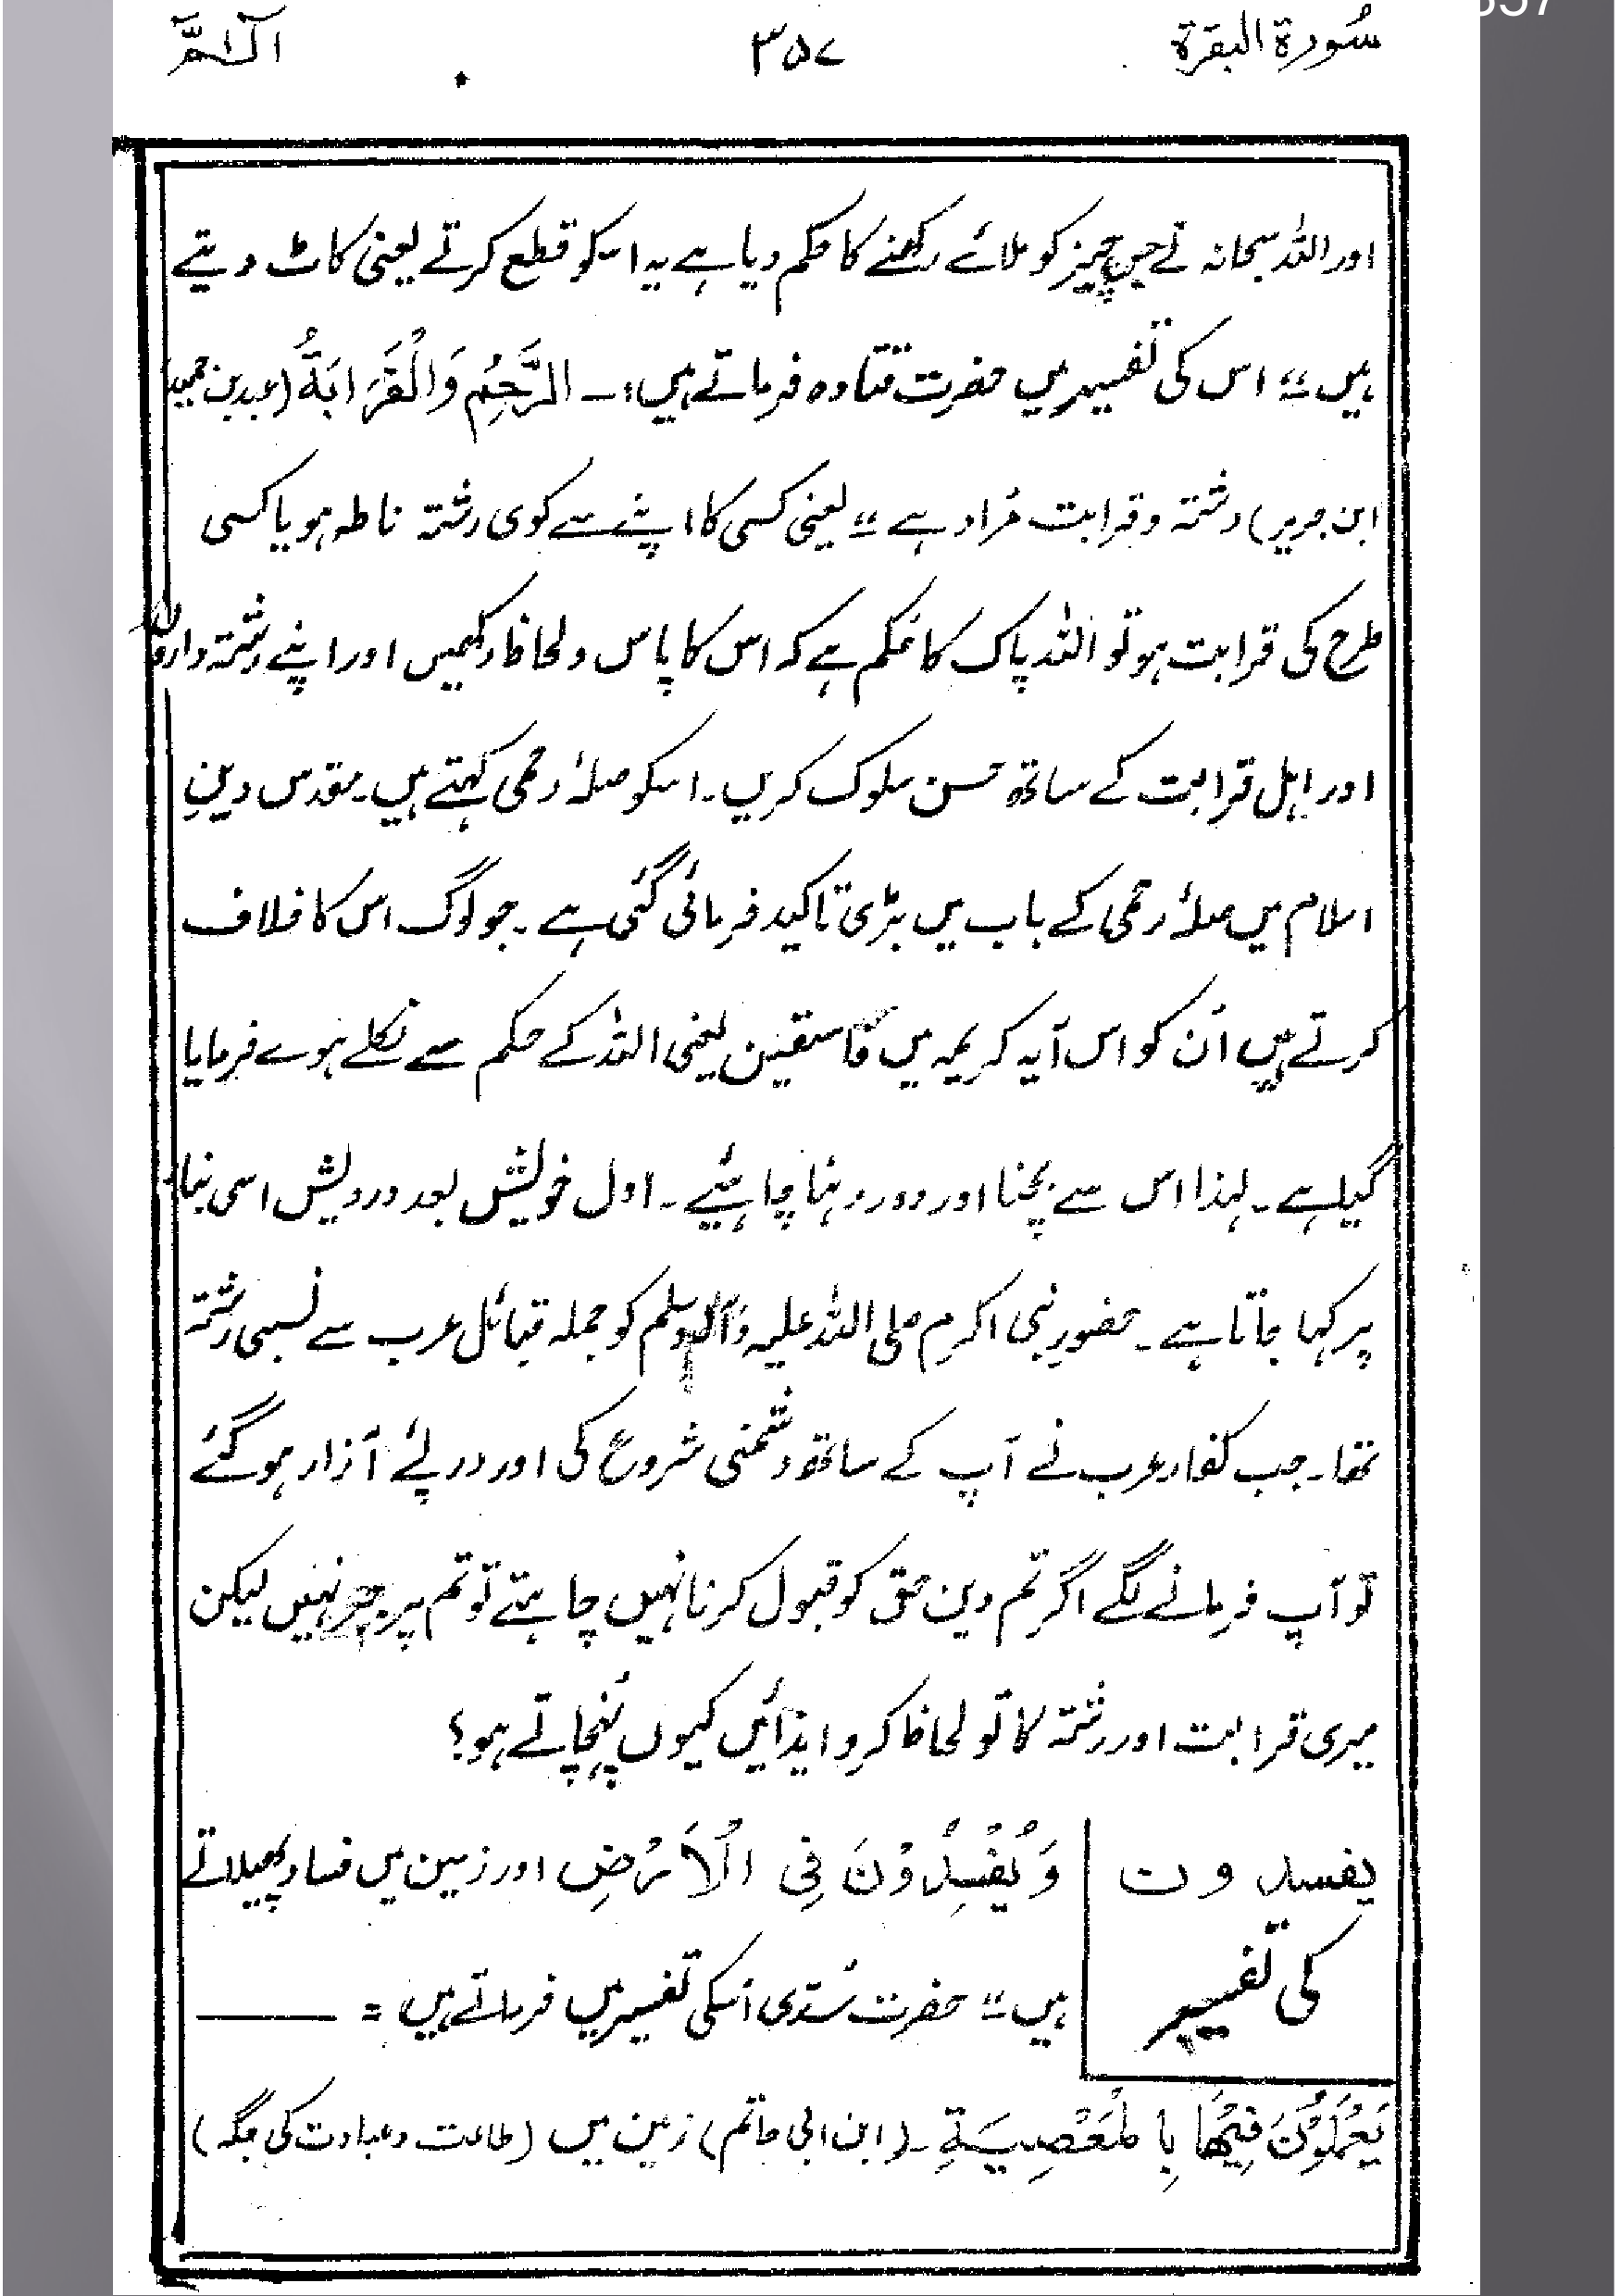 سُورة البقرة ۳۵۷ الٓمّٓ
اور اللہ سبحانہ نے جس چیز کو ملائے رکھنے کا حکم دیا ہے یہ اسکو قطع کرتے یعنی کاٹ دیتے
ہیں ،، اس کی تفسیر میں حضرت قتادہ فرماتے ہیں :۔ الرَّحِمُ وَالْقَرَابَةُ (عبد بن حمید
ابن جریر) رشتہ و قرابت مُراد ہے ،، یعنی کسی کا اپنے سے کوی رشتہ ناطہ ہو یا کسی
طرح کی قرابت ہو تو اللہ پاک کا حُکم ہے کہ اس کا پاس ولحاظ رکھیں اور اپنے رشتہ داروں
اور اہل قرابت کے ساتھ حُسن سلوک کریں۔ اسکو صلۂ رحمی کہتے ہیں۔ مقدس دینِ
اسلام میں صلۂ رحمی کے باب میں بڑی تاکید فرمائی گئی ہے ۔ جو لوگ اس کا خلاف
کرتے ہیں اُن کو اس آیہ کریمہ میں فاسقین یعنی اللہ کے حکم سے نکلے ہوے فرمایا
گیا ہے ۔ لہذا اس سے بچنا اور دور رہنا چاہئیے ۔ اول خویش بعد درویش اسی بنا
پر کہا جاتا ہے ۔ حضورِ نبی اکرم صلی اللہ علیہ وآلہٖ وسلم کو جملہ قبائل عرب سے نسبی رشتہ
تھا۔ جب کفار عرب نے آپ کے ساتھ دشمنی شروع کی اور درپئے آزار ہو گئے
تو آپ فرمانے لگے اگر تم دین حق کو قبول کرنا نہیں چاہتے تو تم پر جبر نہیں لیکن
میری قرابت اور رشتہ کا تو لحاظ کرو ایذائیں کیوں پہنچاتے ہو؟
یفسدون وَیُفْسِدُوْنَ فِی الْاَرْضِ اور زمین میں فساد پھیلاتے
کی تفسیر ہیں ،، حضرت سُدّی اسکی تفسیر میں فرماتے ہیں =
یَعْمَلُوْنَ فِیْهَا بِالْمَعْصِیَةِ ۔ (ابن ابی حاتم) زمین میں (طاعت و عبادت کی جگہ)